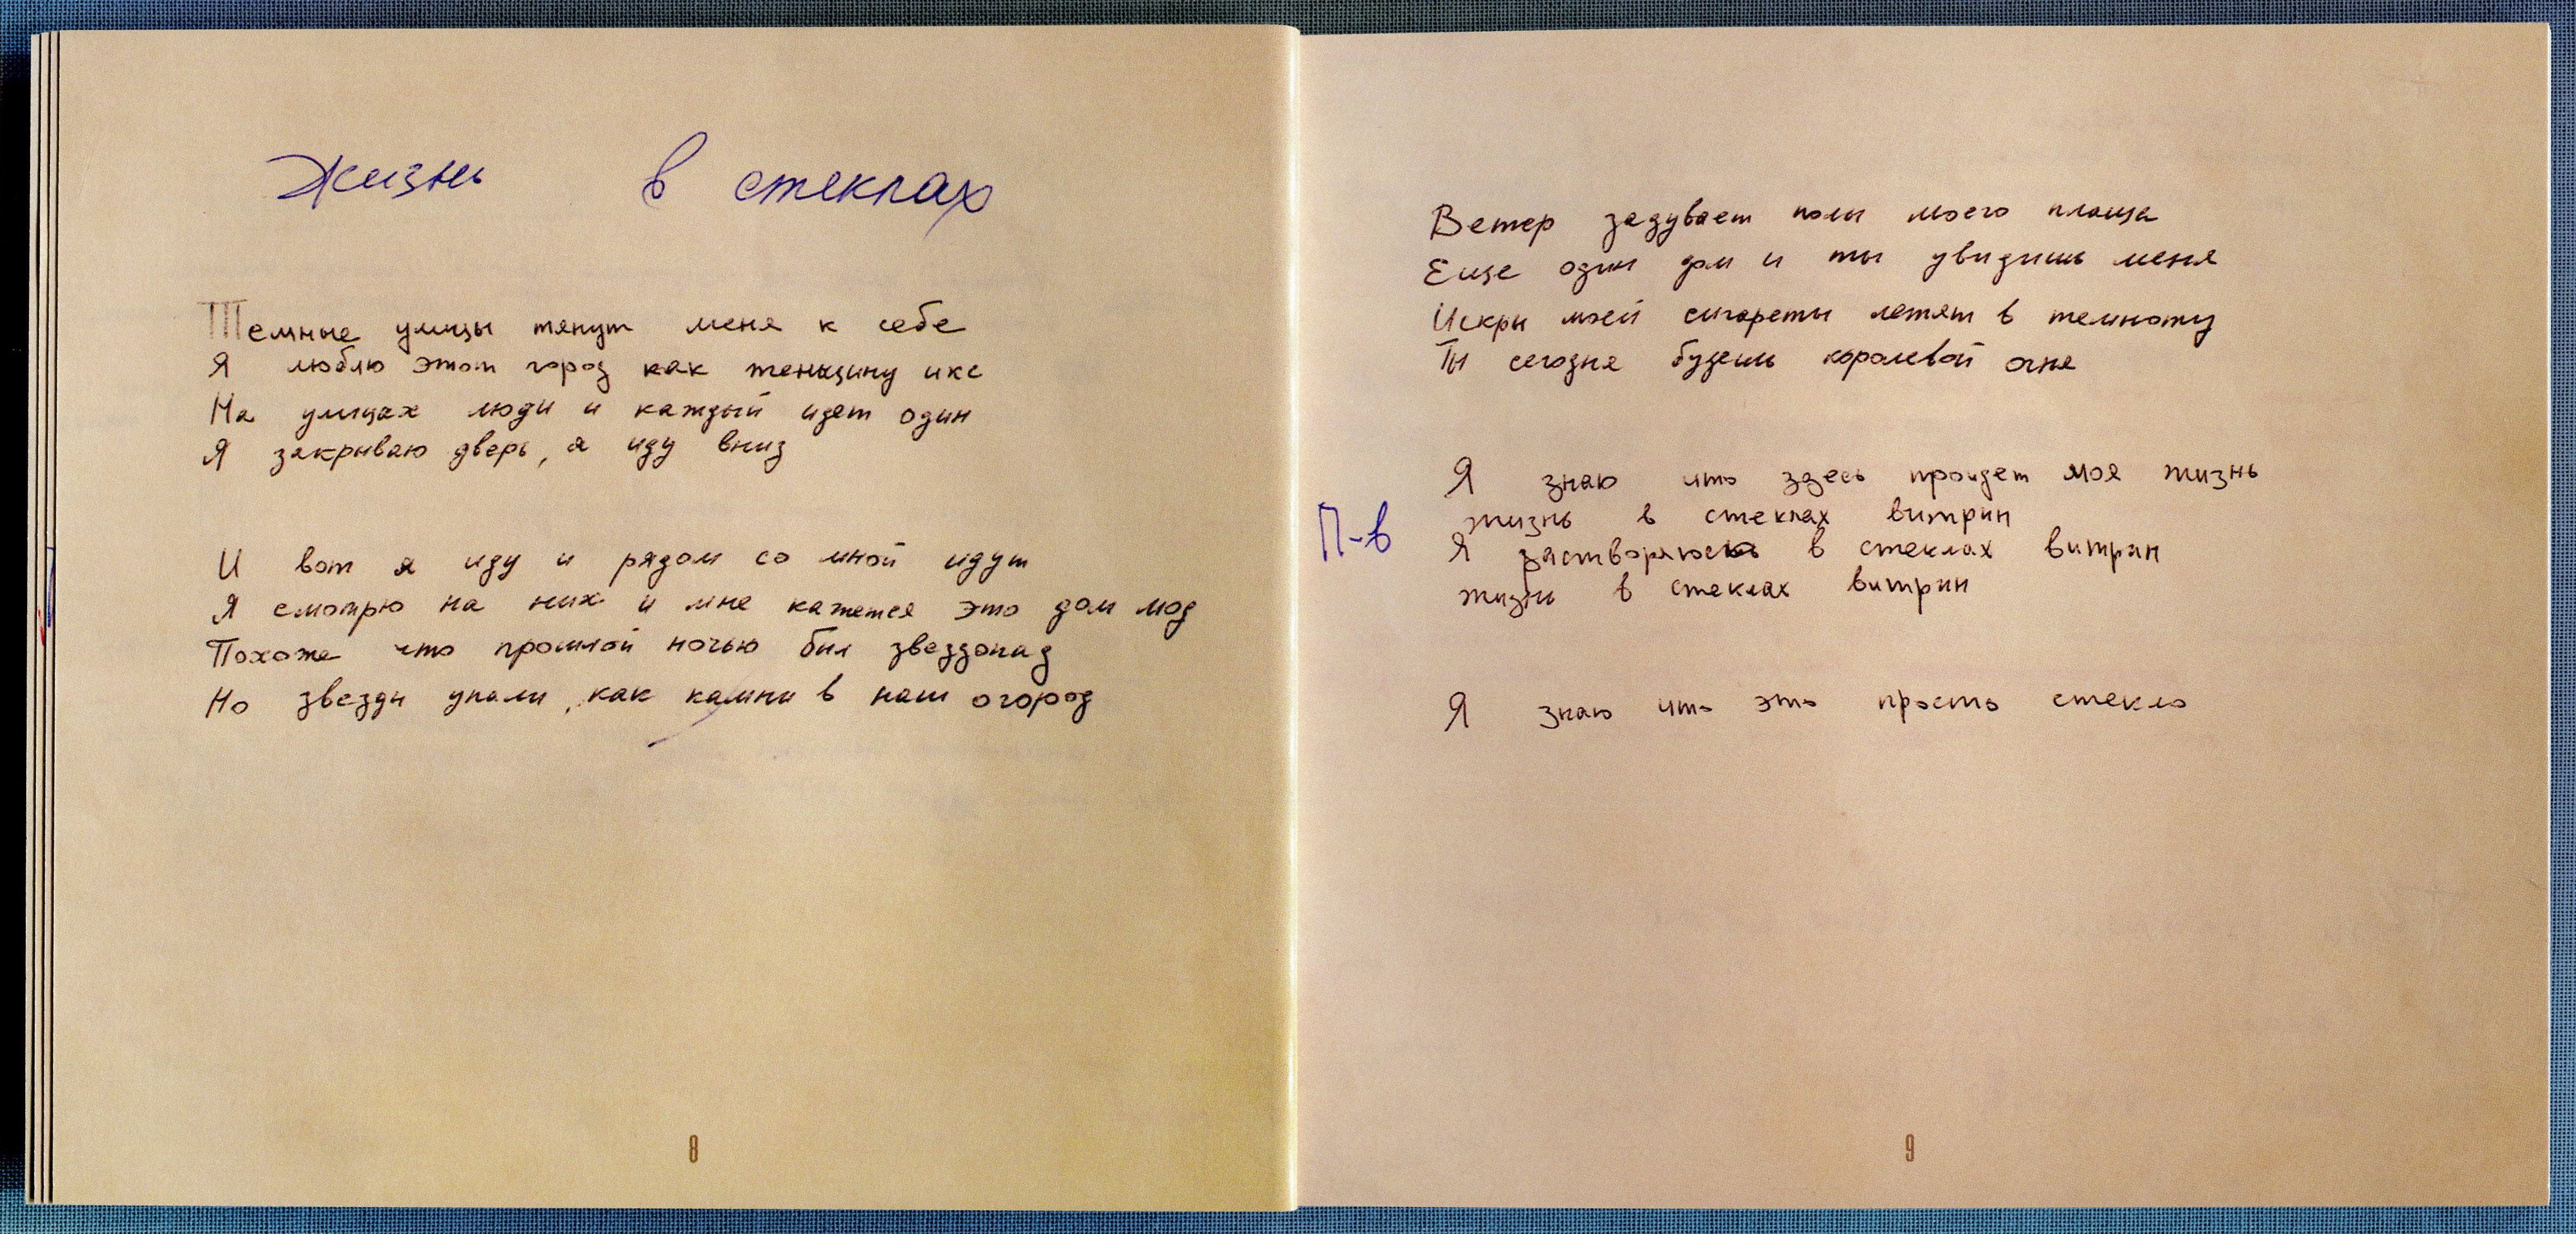 Жизнь в стеклах
Темные улицы тянут меня к себе
Я люблю этот город как женщину икс
На улицах люди и каждый идет один
Я закрываю дверь, я иду вниз
И вот я иду и рядом со мной идут
Я смотрю на них и мне кажется это дом мод
Похоже что прошлой ночью был звездопад
Но звезды упали, как камни в наш огород
8
Ветер задувает полы моего плаща
Еще один дом и ты увидишь меня
Искры моей сигареты летят в темноту
Ты сегодня будешь королевой огня
Я знаю что здесь пройдет моя жизнь
жизнь в стеклах витрин
П-в
Я растворяюсь в стеклах витрин
жизнь в стеклах витрин
Я знаю что это просто стекло
9